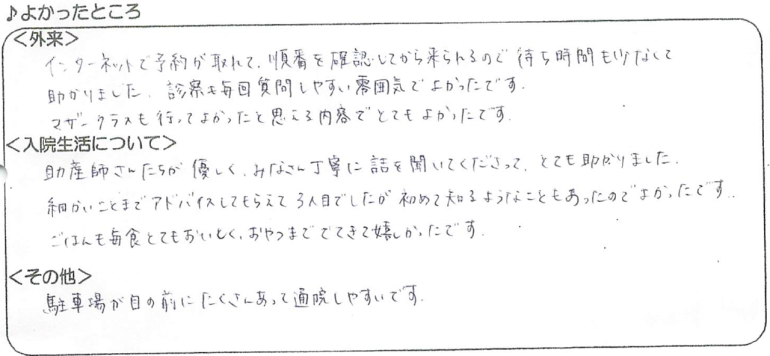 ♪よかったところ
＜外来＞
インターネットで予約が取れて、順番を確認してから来られるので待ち時間も少なくて
助かりました。診察も毎回質問しやすい雰囲気でよかったです。
マザークラスも行ってよかったと思える内容でとてもよかったです。
＜入院生活について＞
助産師さんたちが優しく、みなさん丁寧に話を聞いてくださって、とても助かりました。
細かいことまでアドバイスしてもらえて3人目でしたが初めて知るようなこともあったのでよかったです。
ごはんも毎食とてもおいしく、おやつまででてきて嬉しかったです。
＜その他＞
駐車場が目の前にたくさんあって通院しやすいです。